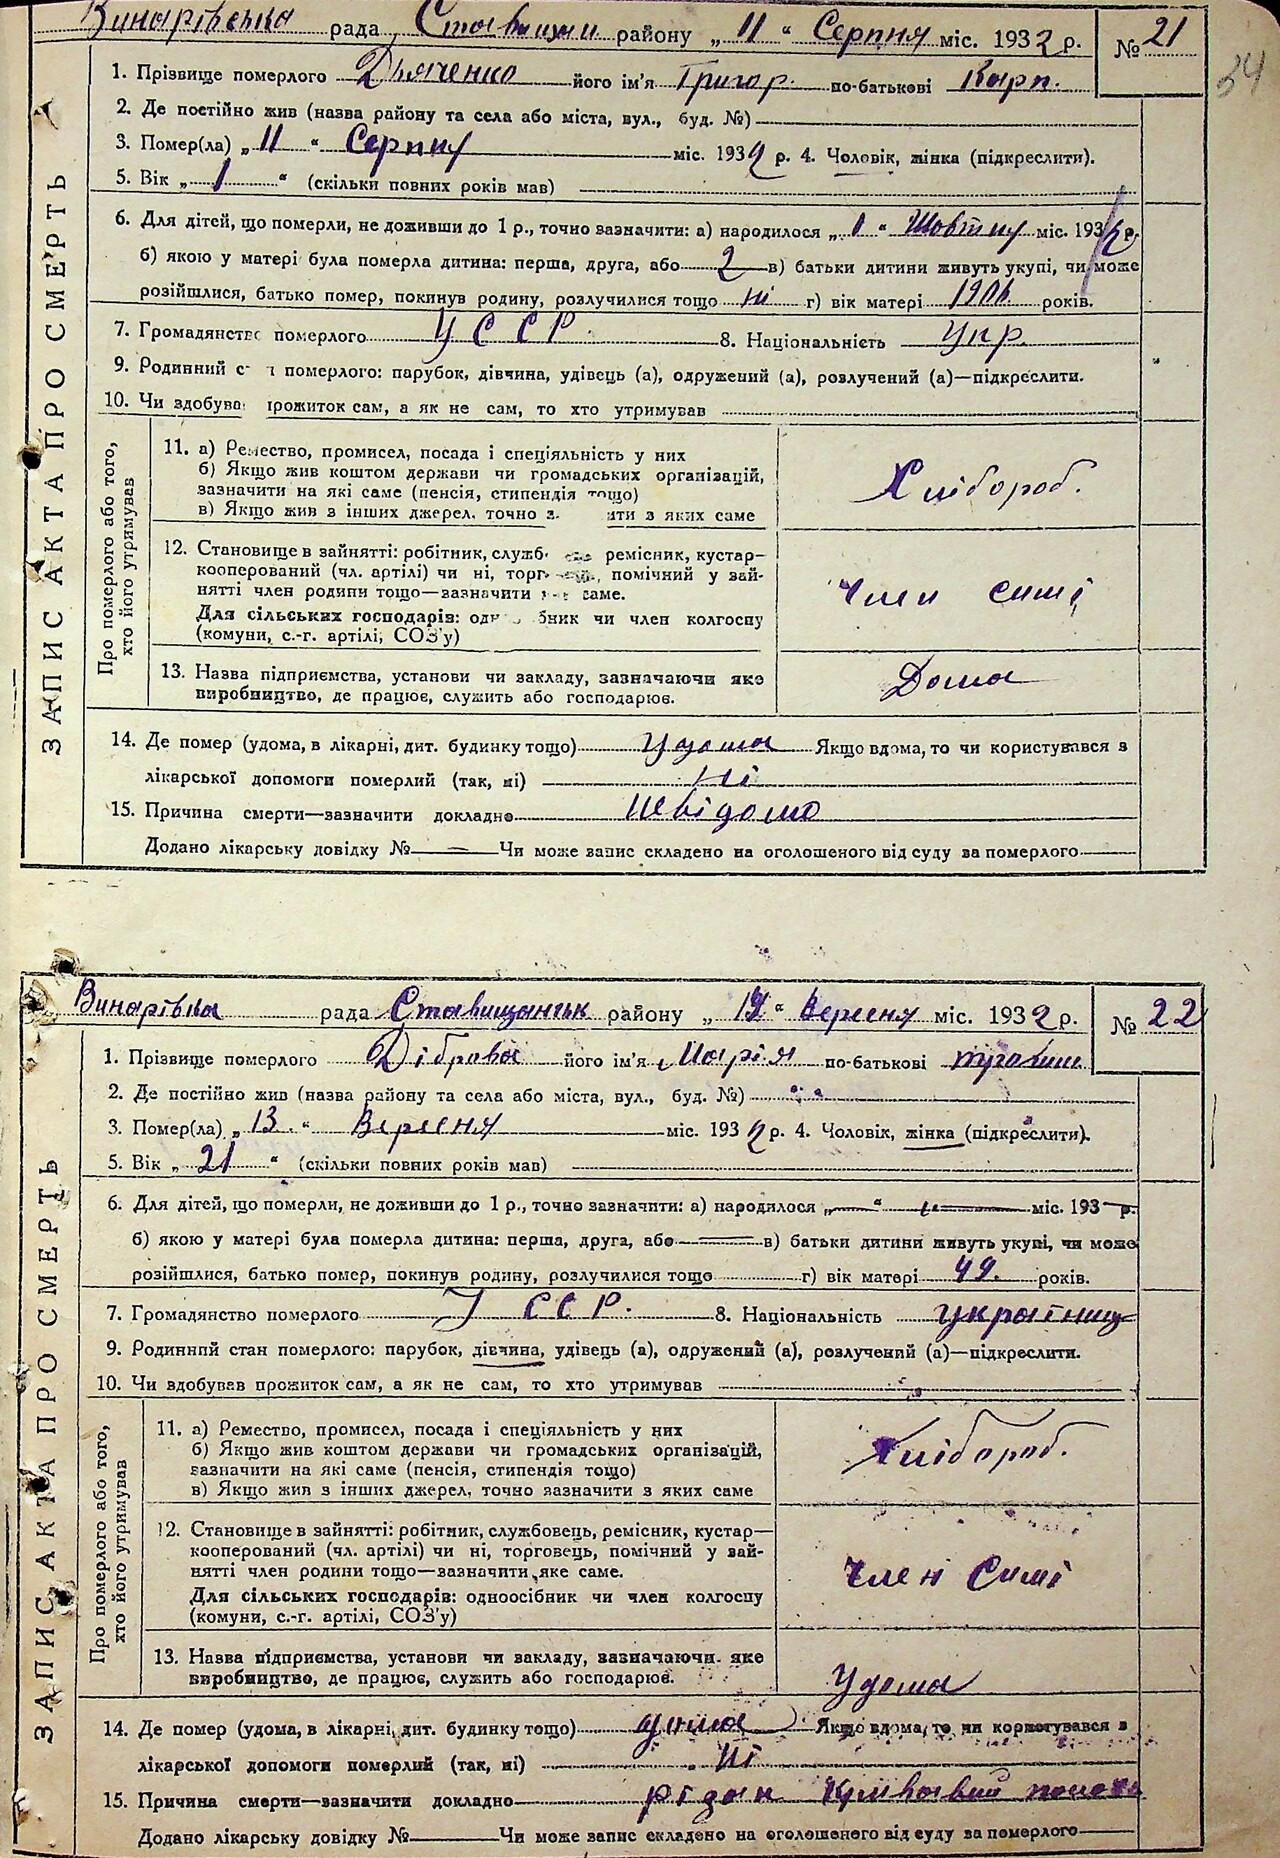 Винарівська рада, Ставищан району „ 11 “ Серпня міс. 1932 р. № 21
34
1. Прізвище померлого Дьяченко його ім'я Григор. по-батькові Карп.
2. Де постійно жив (назва району та села або міста, вул., буд. №)
3. Помер(ла) „ 11 “ Серпня міс. 1932 р. 4. Чоловік, жінка (підкреслити).
5. Вік „ 1 “ (скільки повних років мав)
6. Для дітей, що померли, не доживши до 1 р., точно зазначити: а) народилося „ 1 “ Жовтня міс. 193 р.
б) якою у матері була померла дитина: перша, друга, або 2 в) батьки дитини живуть укупі, чи може
розійшлися, батько помер, покинув родину, розлучилися тощо ні г) вік матері років.
7. Громадянство померлого УССР 8. Національність Укр.
9. Родинний с померлого: парубок, дівчина, удівець (а), одружений (а), розлучений (а)—підкреслити.
10. Чи здобува прожиток сам, а як не сам, то хто утримував
ЗАПИС АКТА ПРО СМЕРТЬ
Про померлого або того,
хто його утримував
11. а) Ремество, промисел, посада і спеціяльність у них
б) Якщо жив коштом держави чи громадських організацій,
зазначити на які саме (пенсія, стипендія тощо)
в) Якщо жив з інших джерел, точно з ити з яких саме
Хлібороб.
12. Становище в зайнятті: робітник, служб ремісник, кустар—
кооперований (чл. артілі) чи ні, торг , помічний у зай-
нятті член родини тощо—зазначити саме.
Для сільських господарів: од бник чи член колгоспу
(комуни, с.-г. артілі, СОЗ'у)
Член симї
13. Назва підприємства, установи чи закладу, зазначаючи яке
виробництво, де працює, служить або господарює.
Дома
14. Де помер (удома, в лікарні, дит. будинку тощо) удома Якщо вдома, то чи користувався з
лікарської допомоги померлий (так, ні) ні
15. Причина смерти—зазначити докладно невідомо
Додано лікарську довідку № Чи може запис складено на оголошеного від суду за померлого
Винарівка рада району „ “ Вересня міс. 1932 р. № 22
1. Прізвище померлого Діброва його ім'я Марія по-батькові
2. Де постійно жив (назва району та села або міста, вул., буд. №)
3. Помер(ла) „ 13. “ Вересня міс. 1932 р. 4. Чоловік, жінка (підкреслити).
5. Вік „ 21 “ (скільки повних років мав)
6. Для дітей, що померли, не доживши до 1 р., точно зазначити: а) народилося „ “ міс. 193 р.
б) якою у матері була померла дитина: перша, друга, або в) батьки дитини живуть укупі, чи може
розійшлися, батько помер, покинув родину, розлучилися тощо г) вік матері 49. років.
7. Громадянство померлого УССР. 8. Національність
9. Родинний стан померлого: парубок, дівчина, удівець (а), одружений (а), розлучений (а)—підкреслити.
10. Чи здобував прожиток сам, а як не сам, то хто утримував
ЗАПИС АКТА ПРО СМЕРТЬ
Про померлого або того,
хто його утримував
11. а) Ремество, промисел, посада і спеціяльність у них
б) Якщо жив коштом держави чи громадських організацій,
зазначити на які саме (пенсія, стипендія тощо)
в) Якщо жив з інших джерел, точно зазначити з яких саме
Хлібороб.
12. Становище в зайнятті: робітник, службовець, ремісник, кустар—
кооперований (чл. артілі) чи ні, торговець, помічний у зай-
нятті член родини тощо—зазначити яке саме.
Для сільських господарів: одноосібник чи член колгоспу
(комуни, с.-г. артілі, СОЗ'у)
Член Симї
13. Назва підприємства, установи чи закладу, зазначаючи яке
виробництво, де працює, служить або господарює.
Удома
14. Де помер (удома, в лікарні, дит. будинку тощо) удома Якщо вдома, то чи користувався з
лікарської допомоги померлий (так, ні) ні
15. Причина смерти—зазначити докладно Крівавий понос
Додано лікарську довідку № Чи може запис складено на оголошеного від суду за померлого